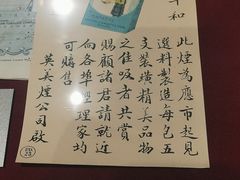 和
此煙為應市起見
選料製造每包五
支裝璜精美品物
之佳吸者共賞
賜顧諸君請就近
向各埠經理家均
可購售
英美煙公司啟